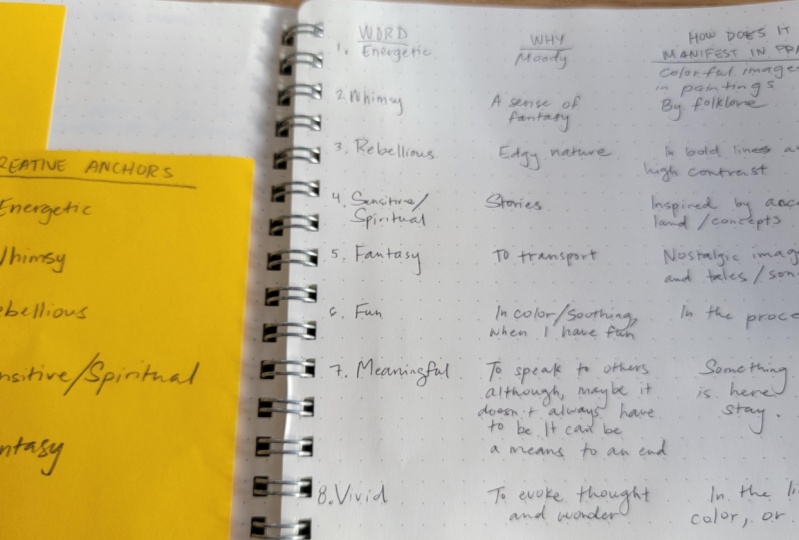 REATIVE ANCHORS
Energetic
Whimsy
ebellious
nsitive/Spiritual
ntasy
WORD WHY HOW DOES IT
MANIFEST IN PRA
1. Energetic Moody Colorful image
in paintings
2. Whimsy A sense of By folklore
fantasy
3. Rebellious Edgy nature In bold lines a
high contrast
4. Sensitive/ Stories Inspired by anc
Spiritual land/concepts
5. Fantasy To transport Nostalgic imag
and tales/son
6. Fun In color/soothing, In the proce
when I have fun
7. Meaningful To speak to others Something
although, maybe it is here
doesn't always have stay.
to be It can be
a means to an end
8. Vivid To evoke thought In the li
and wonder color, or